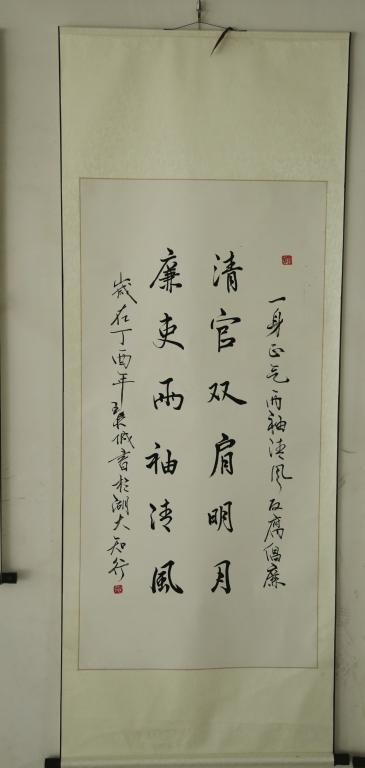 一身正气两袖清风反腐倡廉
清官双肩明月
廉吏两袖清风
岁在丁酉年 书于湖大知行